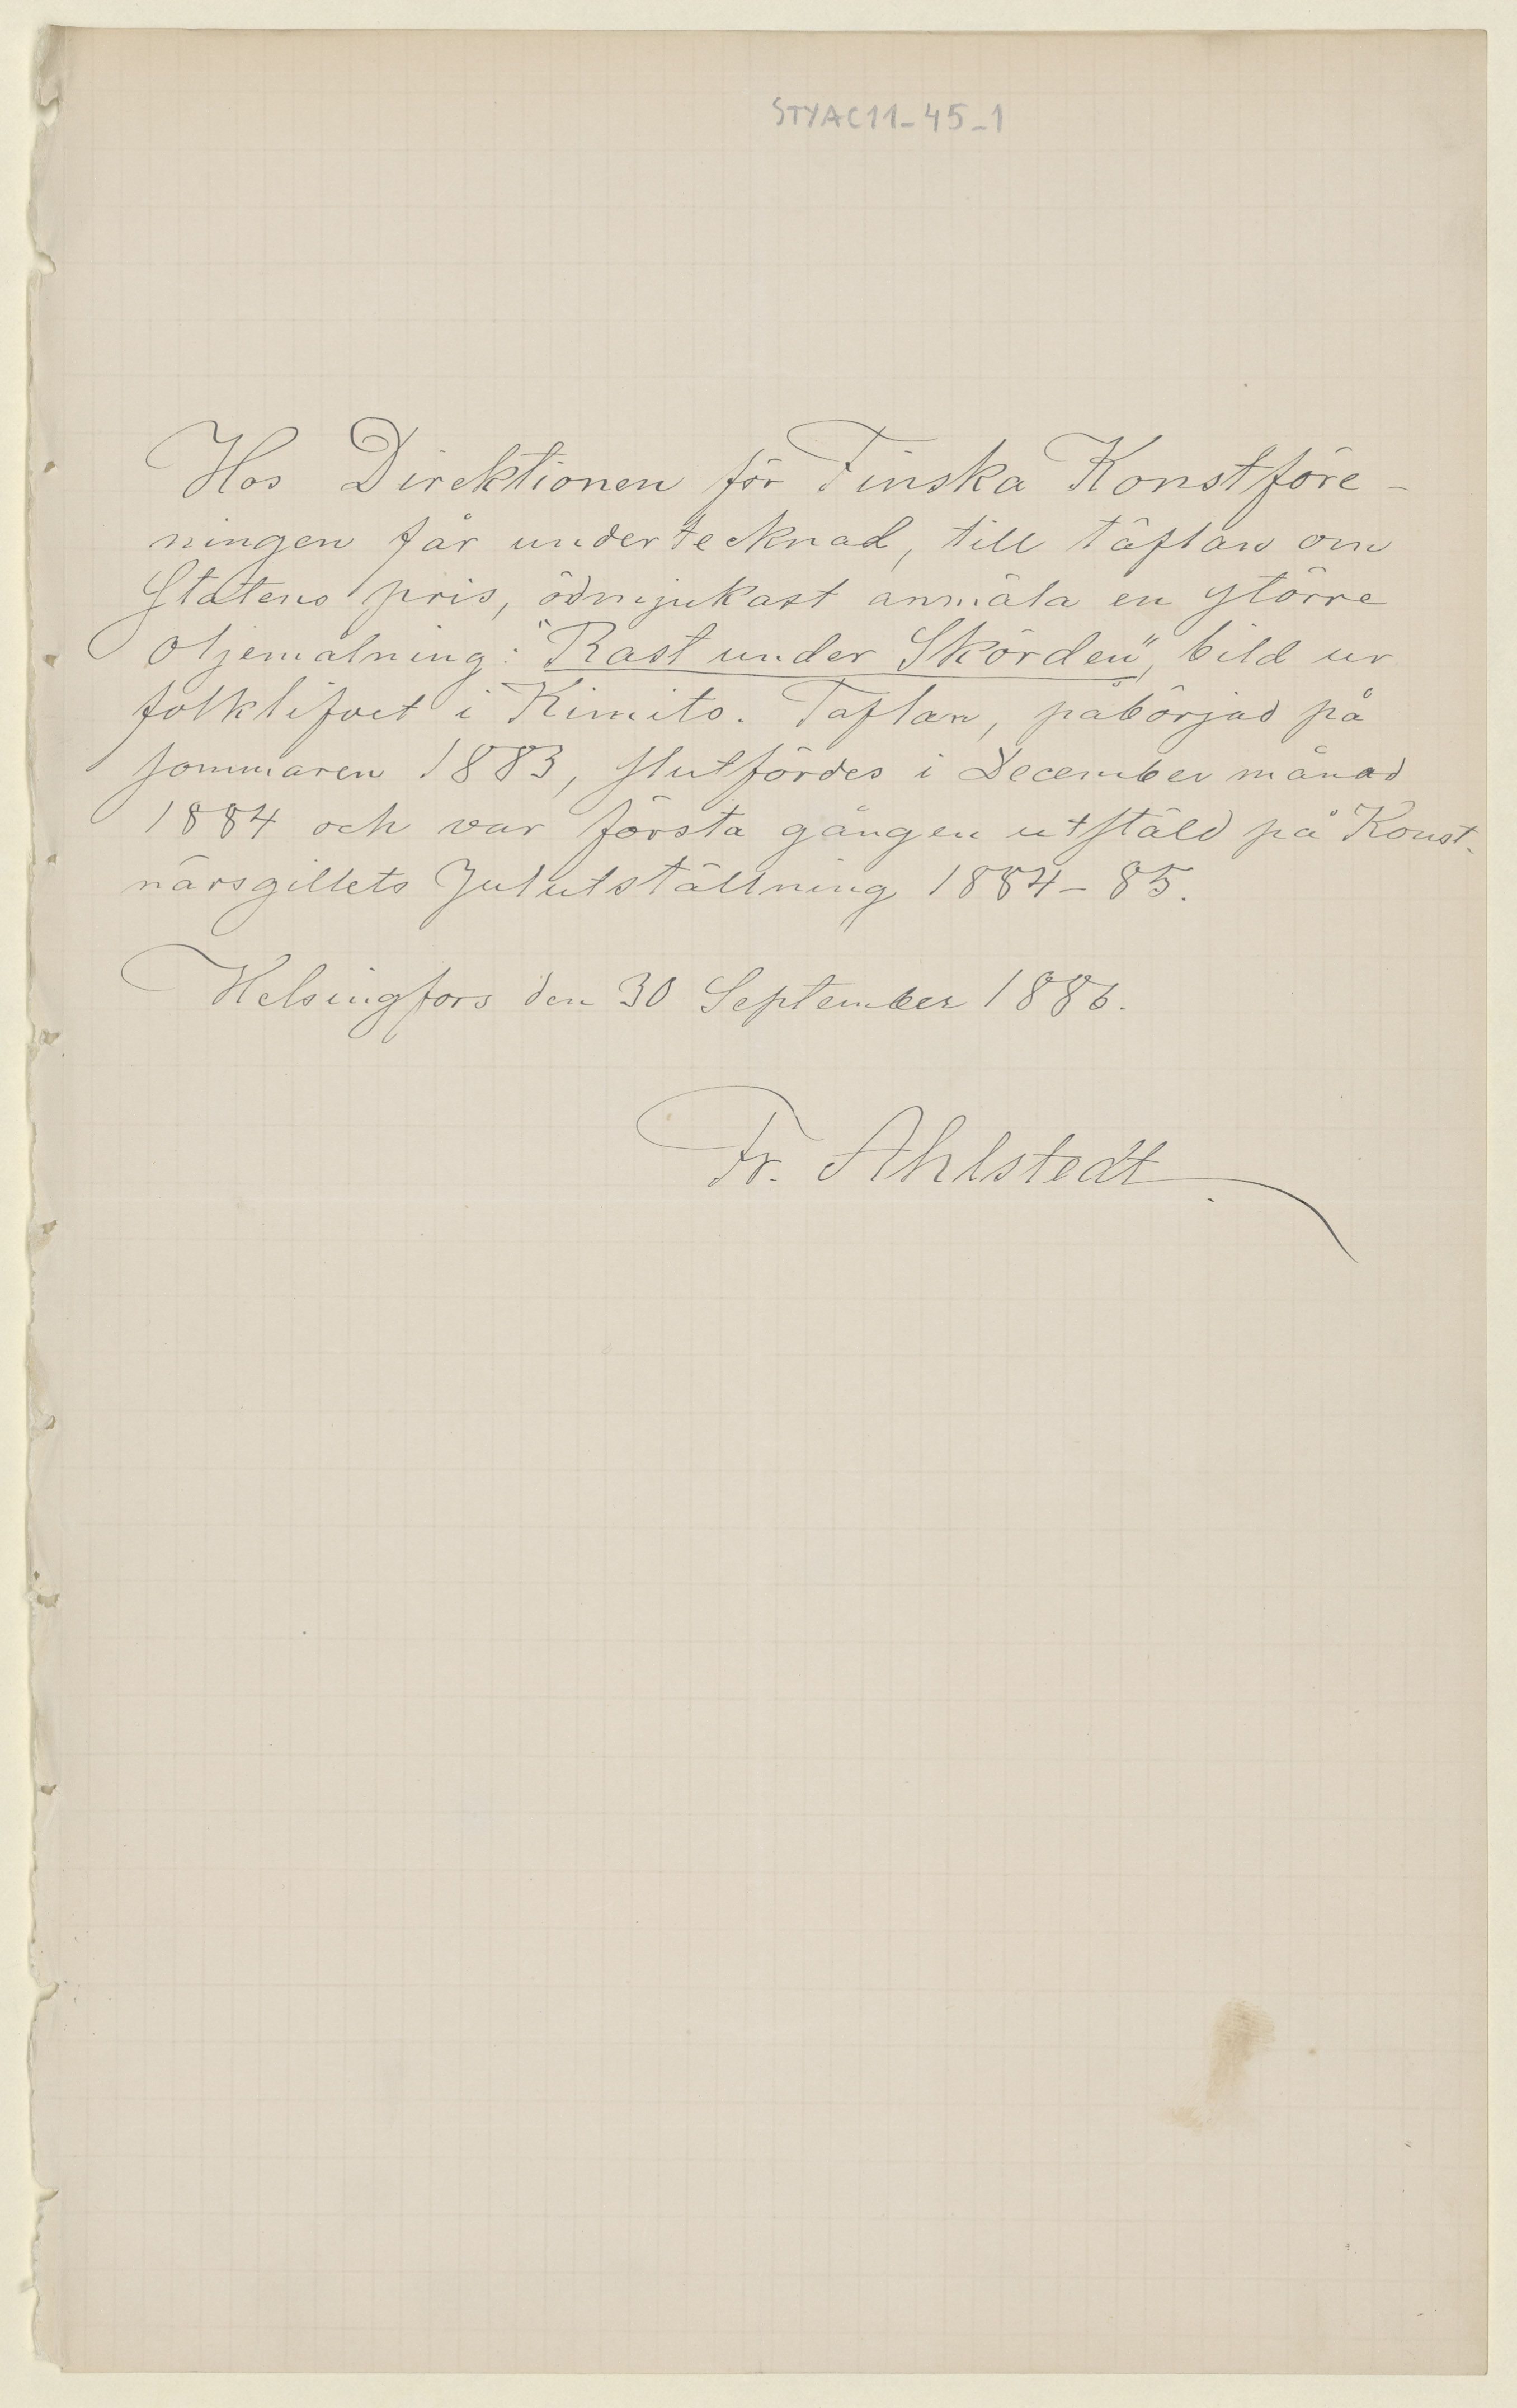 STYAC11-45-1
Hos Direktionen för Finska Konstföre-
ningen får undertecknad, till täflan om
Statens pris, ödmjukast anmäla en större
oljemålning: "Rast under Skörden", bild ur
folklifvet i Kimito. Taflan, påbörjad på
sommaren 1883, slutfördes i December månad
1884 och var första gången utstäld på Konst-
närsgillets Julutställning 1884-85.
Helsingfors den 30 September 1886.
Fr. Ahlstedt